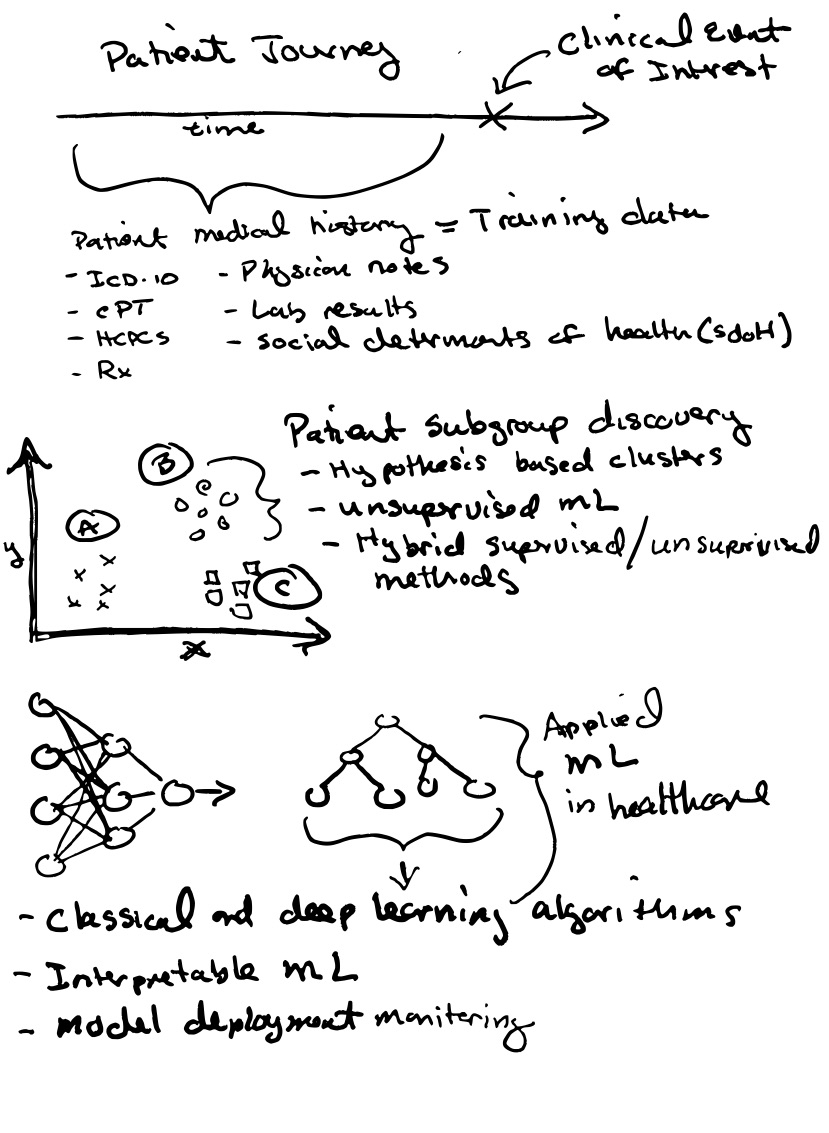 Patient Journey
Clinical Event
of Interest
time
Patient medical history = Training data
- ICD-10
- Physician notes
- CPT
- Lab results
- HCPCS
- social determants of health (SDOH)
- Rx
Patient subgroup discovery
- Hypothesis based clusters
- unsupervised ML
- Hybrid supervised/unsupervised
methods
B
A
C
y
x
Applied
ML
in healthcare
- Classical and deep learning algorithms
- Interpretable ML
- Model deployment monitering